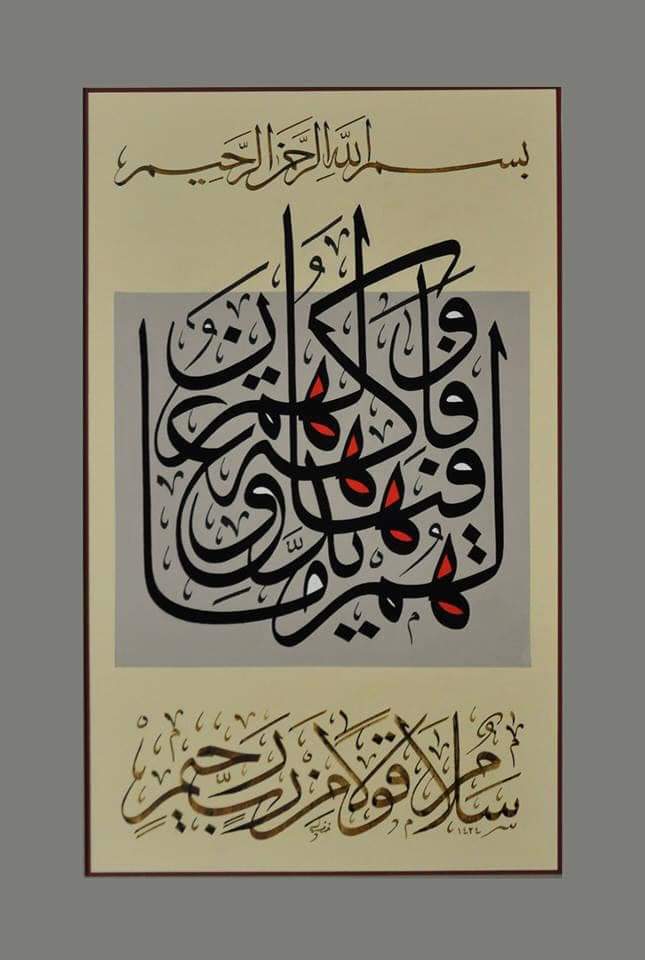 بسم الله الرحمن الرحيم
لهم فيها فاكهة ولهم ما يدعون
سلام قولا من رب رحيم